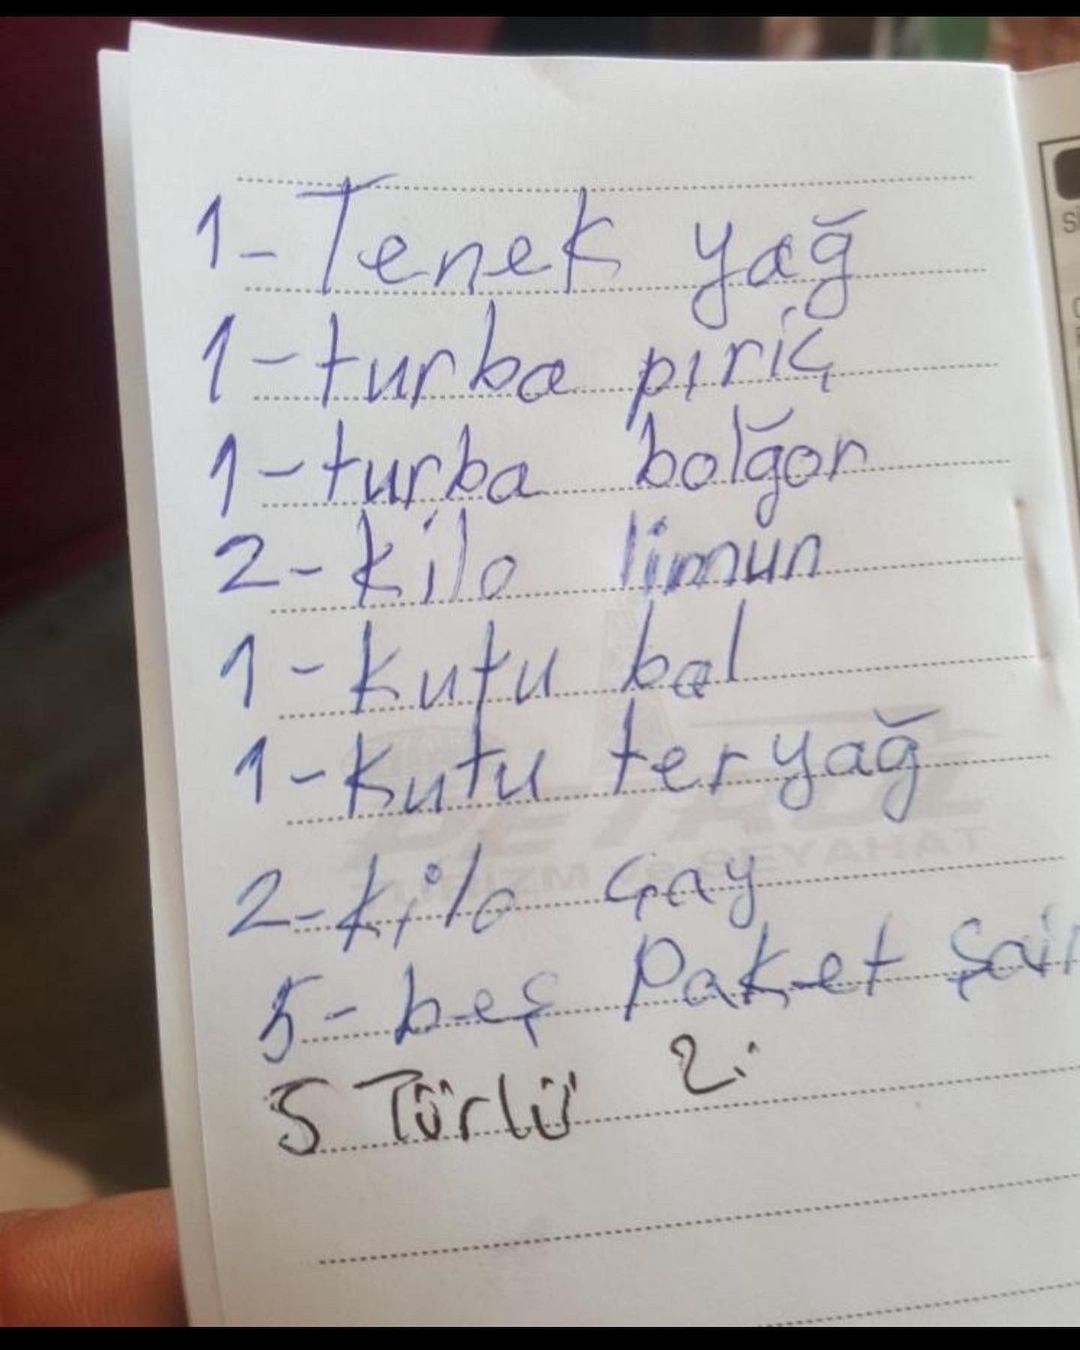 1-Tenek yağ
1-turba pıriç
1-turba bolğor
2-kilo limun
1-kutu bal
1-kutu teryağ
2-kilo çay
5-beş Paket
5 Türlü 2.
TURİZM SEYAHAT